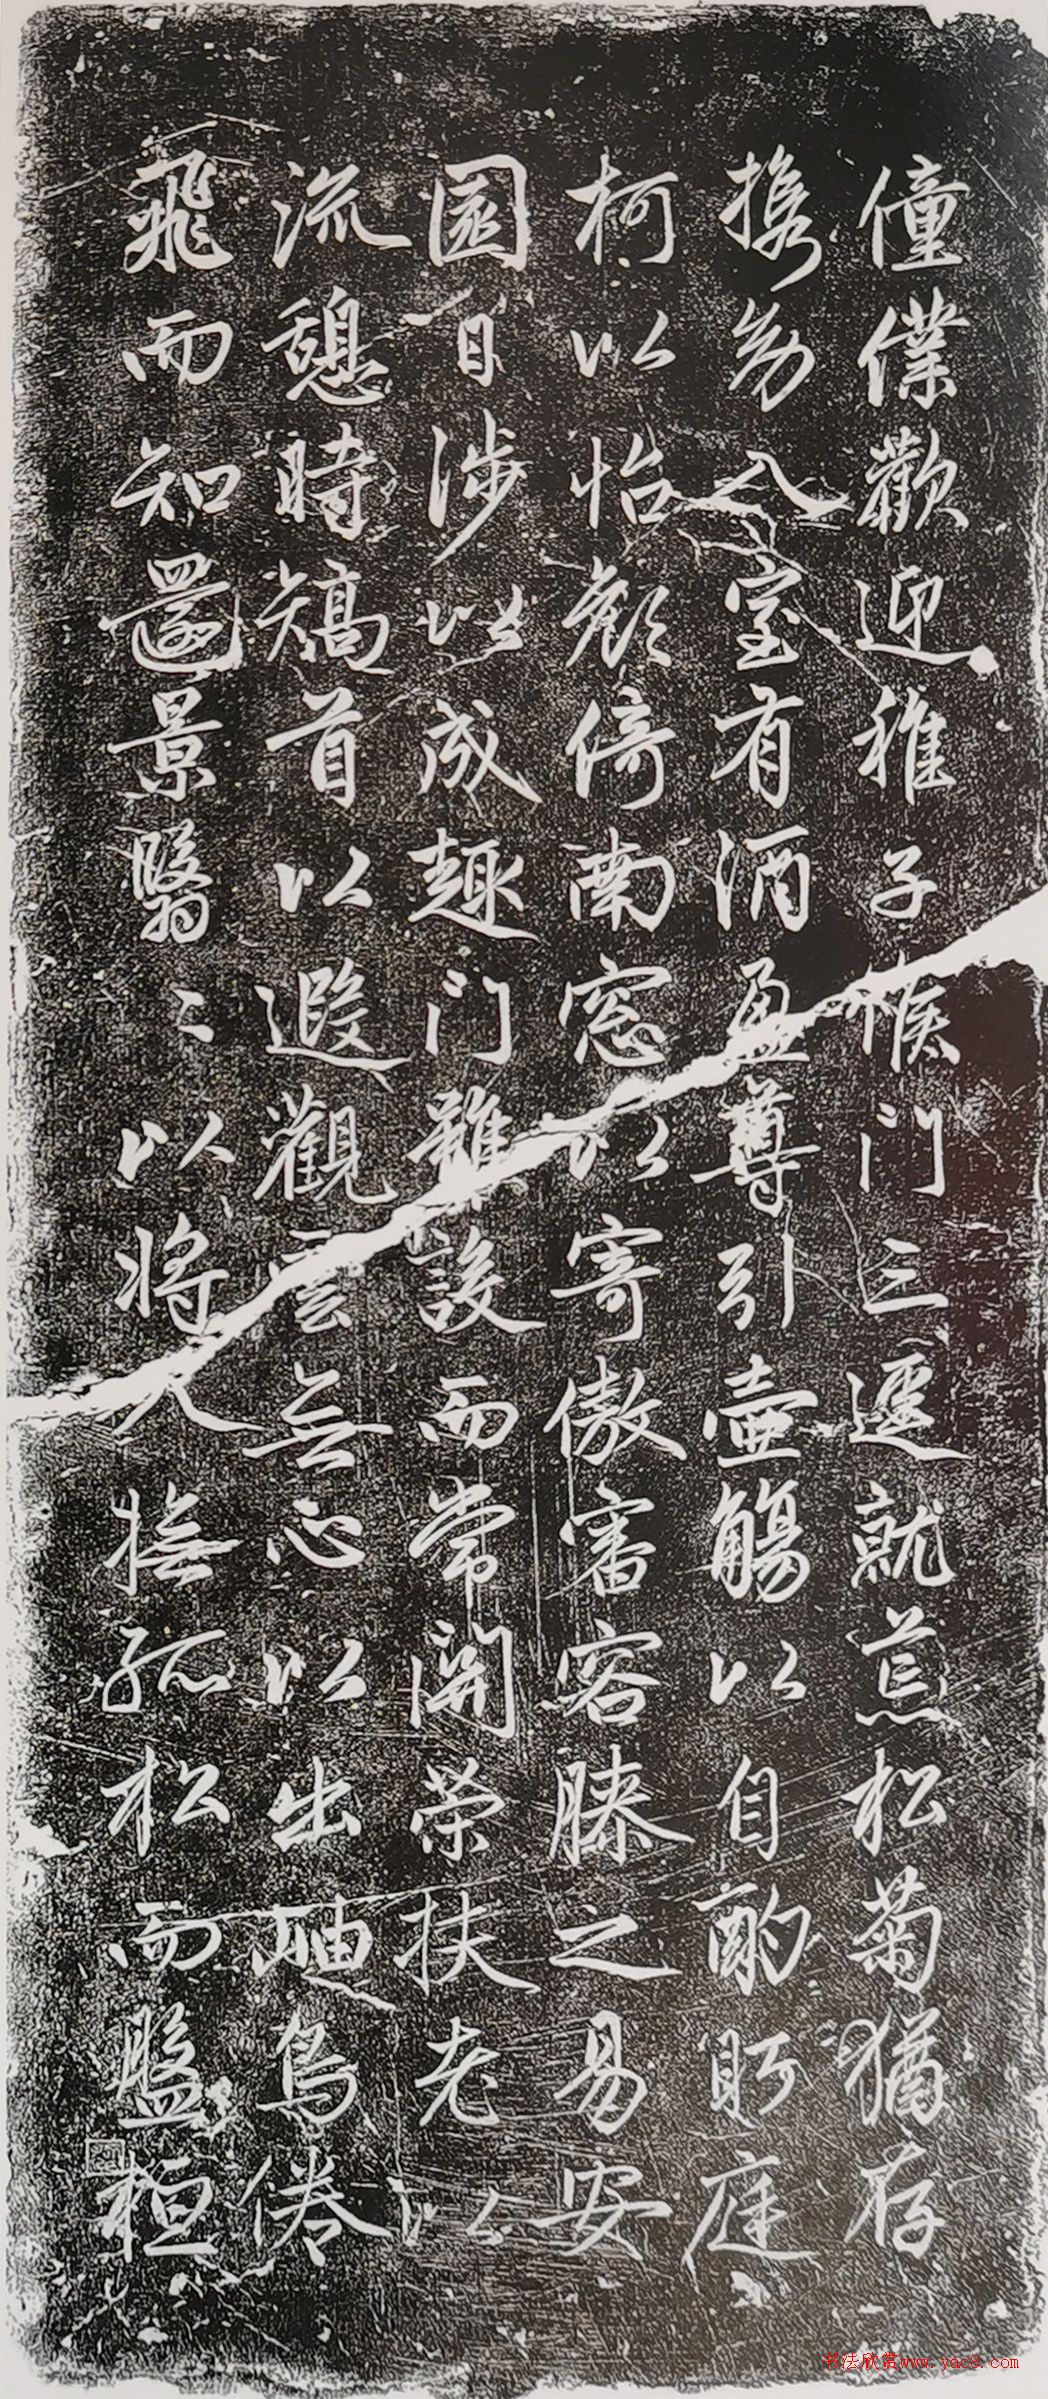 僮僕歡迎稚子候門三逕就荒松菊猶存
携幼入室有酒盈尊引壺觴以自酌眄庭
柯以怡顏倚南窓以寄傲審容膝之易安
園日涉以成趣門雖設而常開榮扶老以
流憩時矯首以遐觀雲無心以出岫鳥倦
飛而知還景翳〻以將入撫孤松而盤桓
书法欣赏www.yac8.com